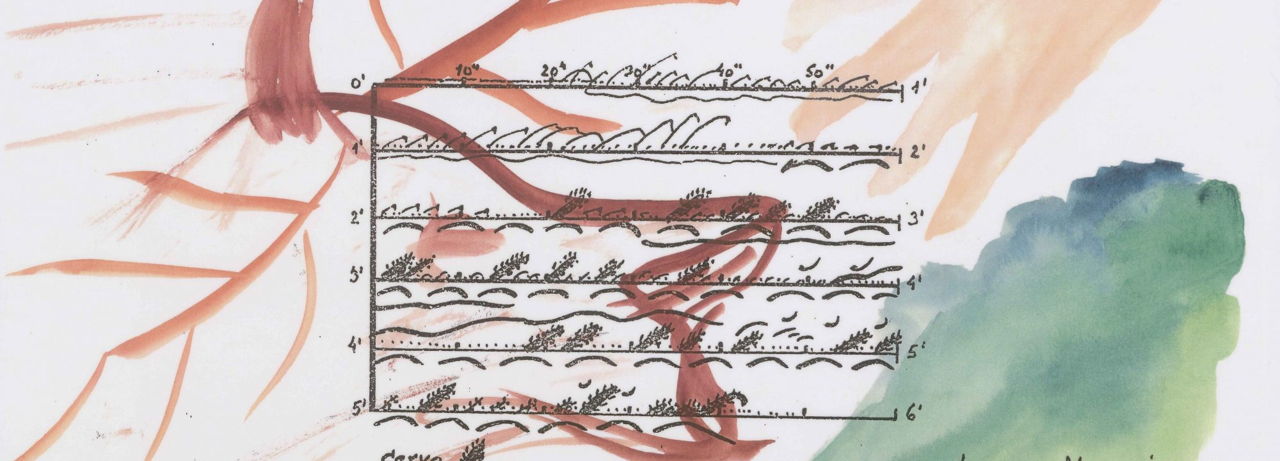 10" 20" 30" 40" 50"
0' 1'
1' 2'
2' 3'
3' 4'
4' 5'
5' 6'